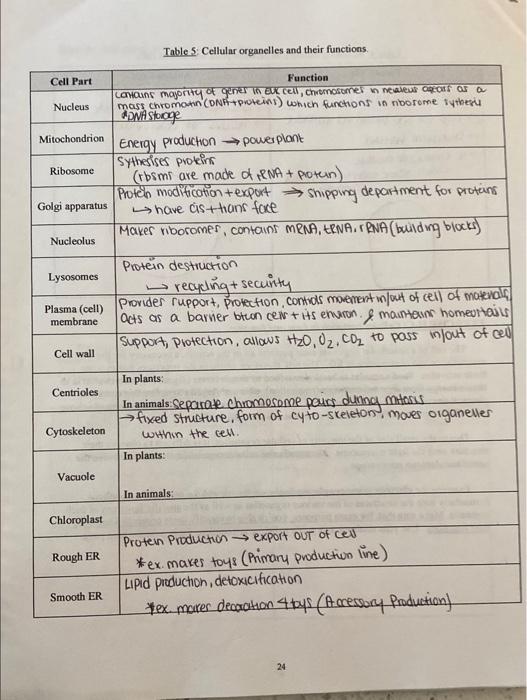 Table 5: Cellular organelles and their functions.
Cell Part
Function
Nucleus
contains majority of genes in EUK cell, chromosomes in appears as a
mass chromatin (DNA+proteins) which functions in ribosome
*DNA storage
Mitochondrion
Energy production → powerplant
Ribosome
Sythesises proteins
(rbsms are made of rRNA + protein)
Golgi apparatus
Protein modification + export → shipping department for proteins
↳ have cis + trans face
Nucleolus
Makes ribosomes, contains mRNA, tRNA, rRNA (building blocks)
Lysosomes
Protein destruction
↳ recycling + security
Plasma (cell)
membrane
Provides support, protection, controls movement in/out of cell of materials,
acts as a barrier btwn cell + its environ. & maintains homeostasis
Cell wall
Support, protection, allows H2O, O2, CO2 to pass in/out of cell
Centrioles
In plants:
In animals: Separate chromosome pairs during mitosis
Cytoskeleton
→ fixed structure, form of cyto-skeleton, moves organelles
within the cell.
Vacuole
In plants:
In animals:
Chloroplast
Rough ER
Protein Production → export OUT of cell
*ex. makes toys (Primary production line)
Smooth ER
Lipid production, detoxicification
*ex. makes decoration 4 toys (Accessory Production)
24